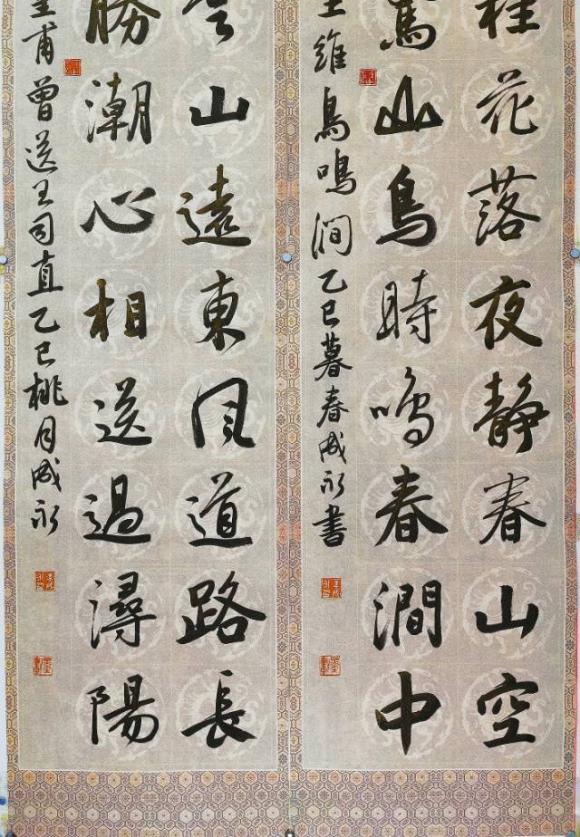 桂花落夜静春山空
驚山鳥時鳴春澗中
王維鳥鳴澗乙巳暮春成永書
山遠東风道路長
勝潮心相送過潯陽
皇甫曾送王司直乙巳桃月成永